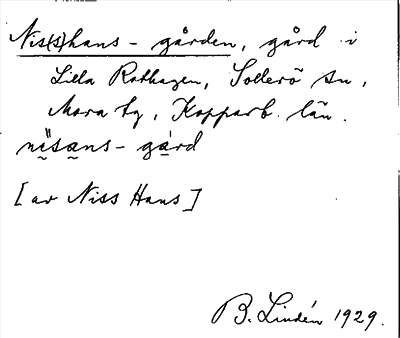 Nis(s)hans-gården, gård i
Lilla Rothagen, Sollerö sn,
Mora tg, Kopparb. län.
nisans-gård
[av Niss Hans]
B. Lindén 1929.